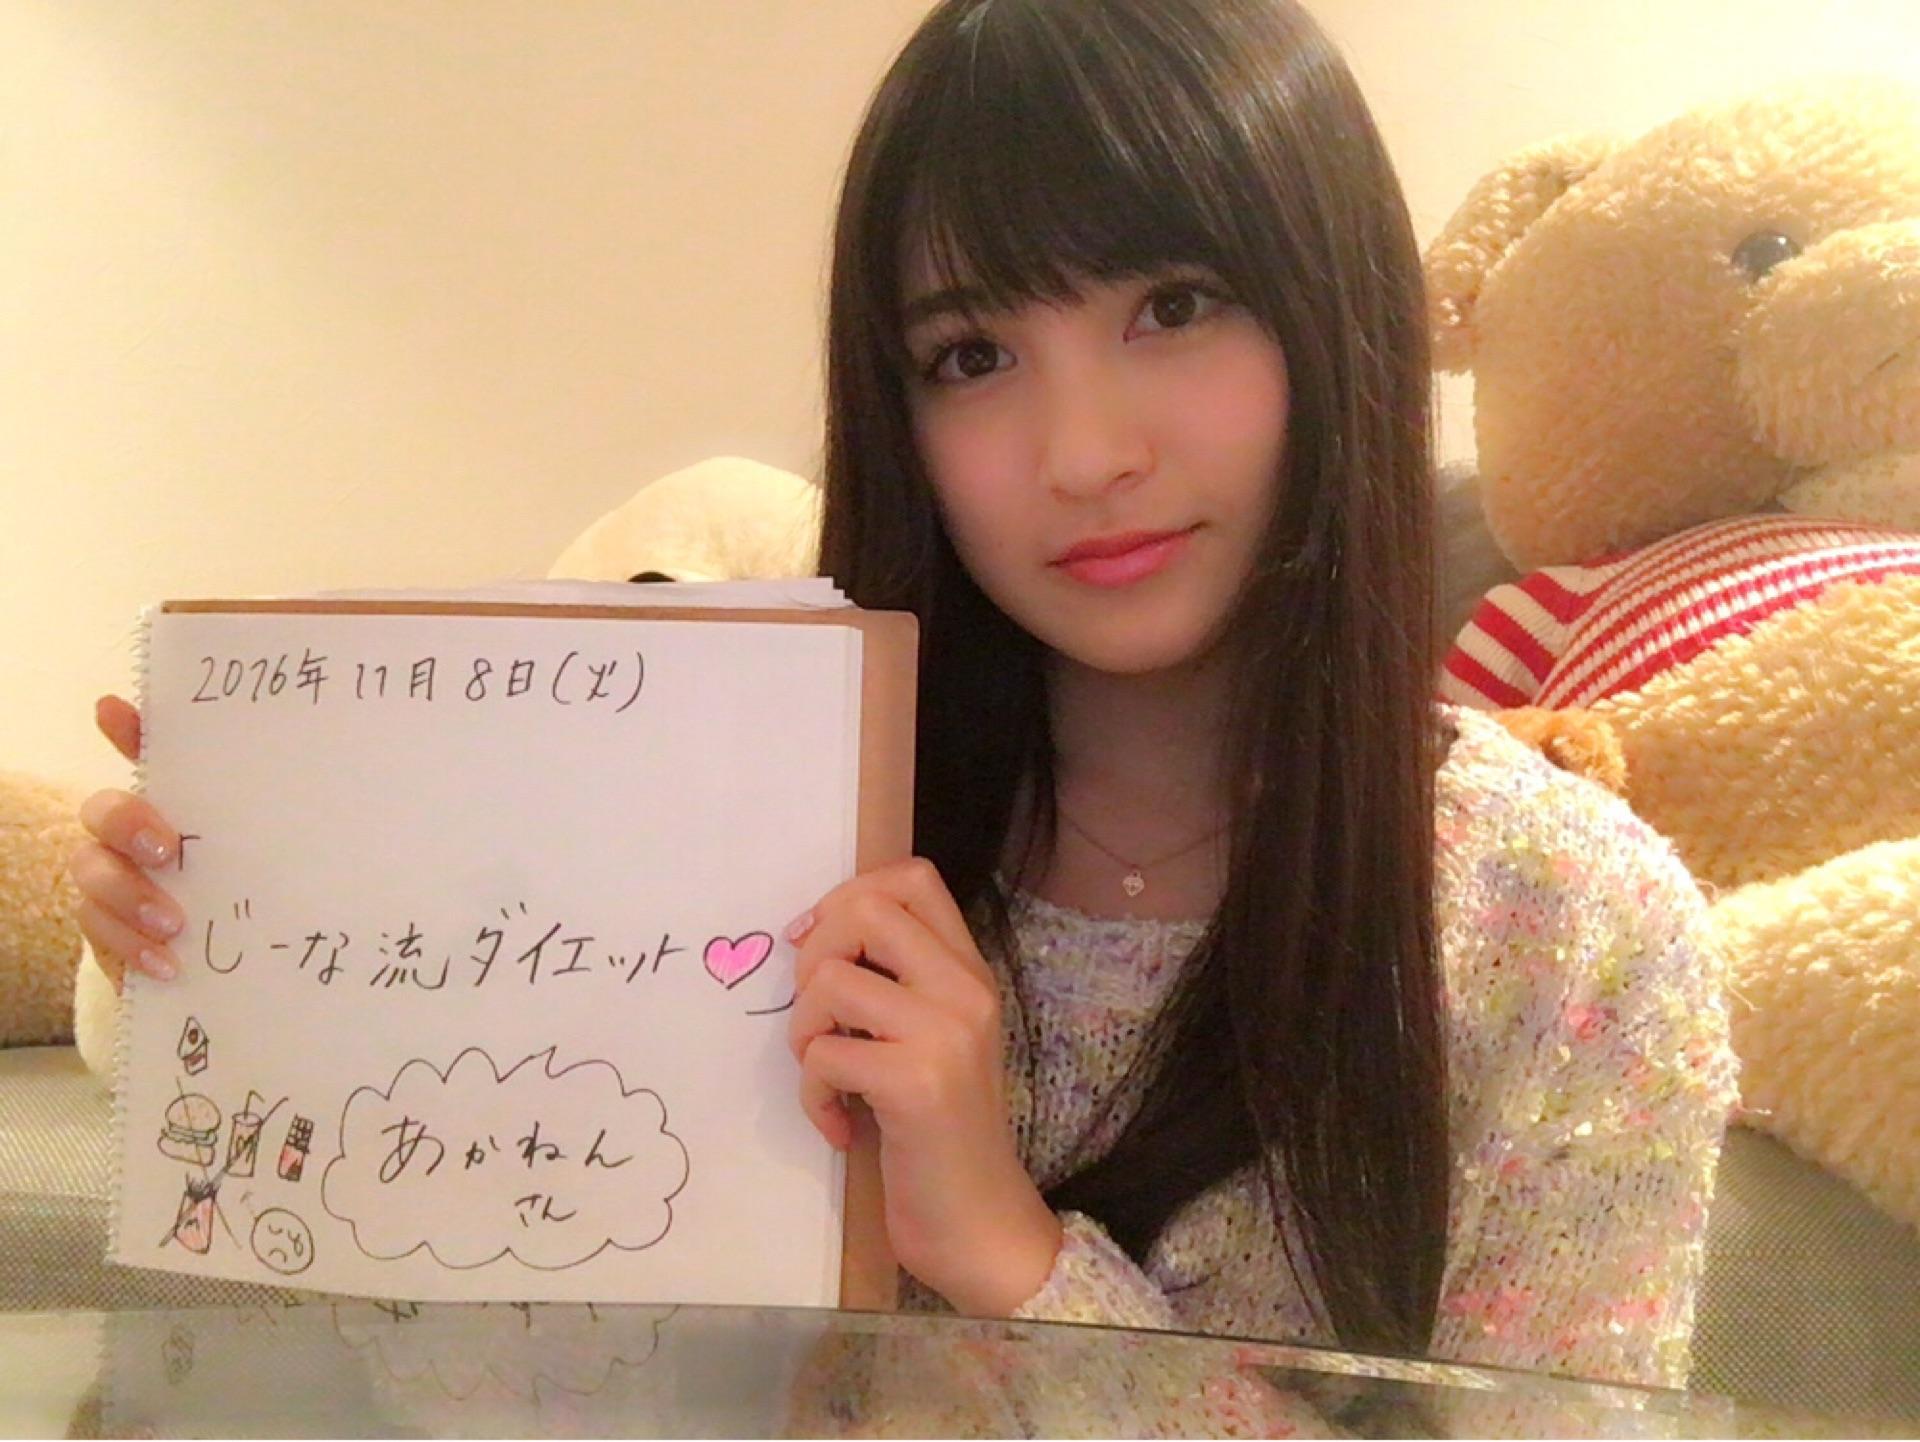 2016年 11月 8日(火)
「
じーな流ダイエット♡」
あかねん
さん